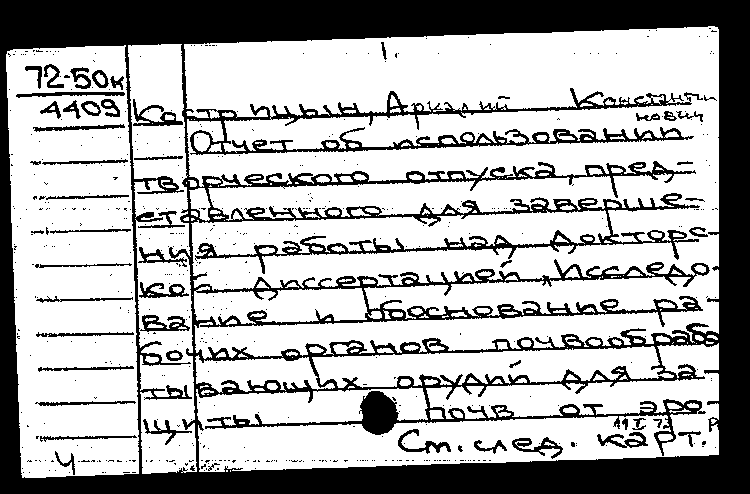 1.
72-50к
4409
Кострицын, Аркадий Константинович
Отчет об использовании
творческого отпуска, пред-
ставленного для заверше-
ния работы над докторс-
коб диссертацией „Исследо-
вание и обоснование ра-
бочих органов почвообраба-
тывающих орудий для за-
щиты почв от эро-
См. след. карт.
Ч